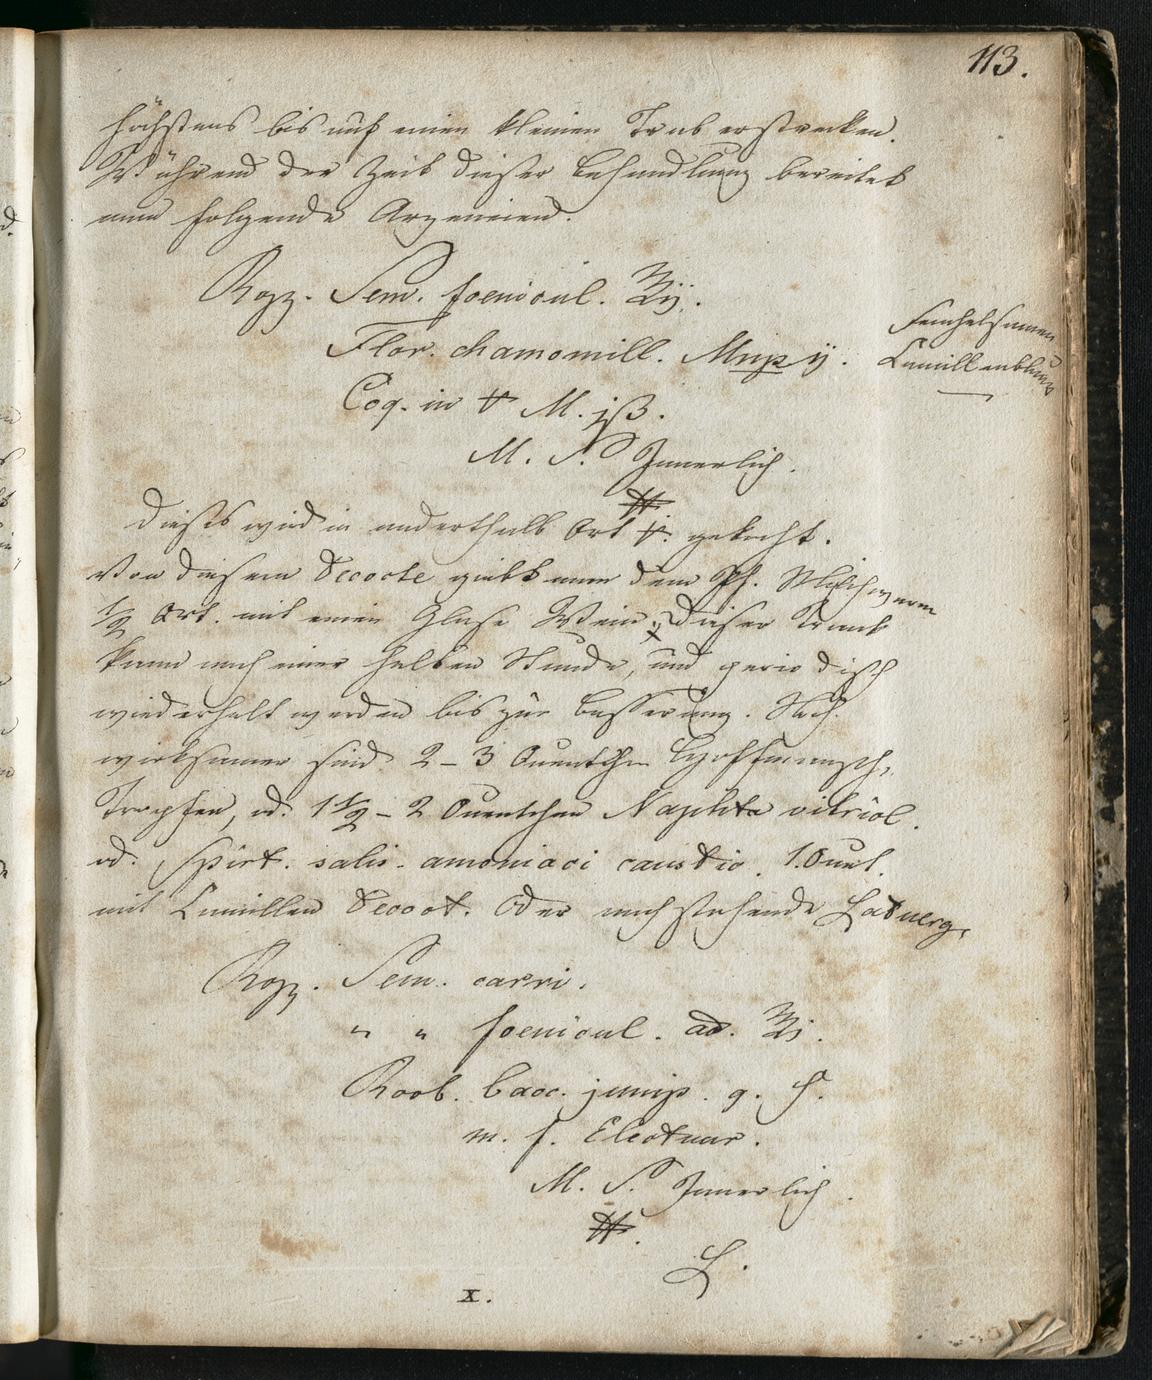 113.
höchstens bis auf einen kleinen Trab erstrecken.
Während der Zeit dieser Behandlung bereitet
man folgende Arzeneien.
Rcpz. Sem. foenicul. ℥ij.
Flor. chamomill. Mnp ij.
Fenchelsamen
Camillenblum
Coq. in M. jß.
M. S. Innerlich.
Dieß wird in anderthalb Ort gekocht.
Von diesem Decocte giebt man dem Pf. Milchwarm
1/2 Ort. mit einen Glase Wein, Dieser Trank
kann nach einer halben Stunde, und periodisch
wiederholt werden bis zur Besserung. Noch
wirksamer sind 2 – 3 Quentchen Hoffmansch.
Tropfen, od. 1 1/2 – 2 Quentchen Naphta vitriol.
od. Spirt. salis. amoniaci caustic. 1. Quet.
mit Camillen Decoct. Oder nachstehende Latwerg.
Rcpz. Sem. carvi.
" " foenicul. aa. ℥j.
Roob. bacc. junip. q. s.
m. f. Electuar.
M. S. Innerlich.
L.
x.